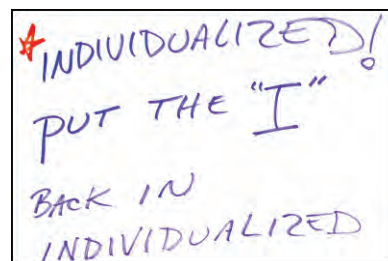 INDIVIDUALIZED!
PUT THE "I"
BACK IN
INDIVIDUALIZED